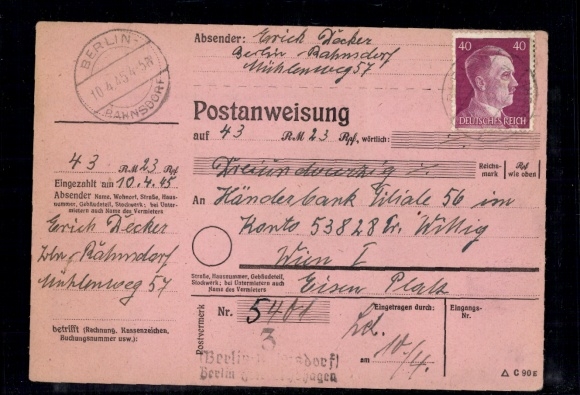 BERLIN-
10.4.45.4-5N
RAHNSDORF
Absender: Erich Decker
Berlin-Rahnsdorf
Mühlenweg 57
40 40
DEUTSCHES REICH
Postanweisung
auf 43 RM 23 Rpf, wörtlich:
43 RM 23 Rpf
Eingezahlt am 10.4.45
Absender Name, Wohnort, Straße, Haus-
nummer, Gebäudeteil, Stockwerk; bei Unter-
mietern auch Name des Vermieters
Erich Decker
Rahnsdorf
Mühlenweg 57
betrifft (Rechnung, Kassenzeichen,
Buchungsnummer usw.):
Reichs-
mark
Rpf
wie oben
An Länderbank Filiale 56 im
Konto 53828 Wittig
Wien I
Straße, Hausnummer, Gebäudeteil,
Stockwerk; bei Untermietern auch
Name des Vermieters
Postvermerk
Nr. 5401
3
(Berlin-Rahnsdorf)
Berlin
Eingetragen durch:
am 10/4.
Eingangs-
Nr.
C 90E